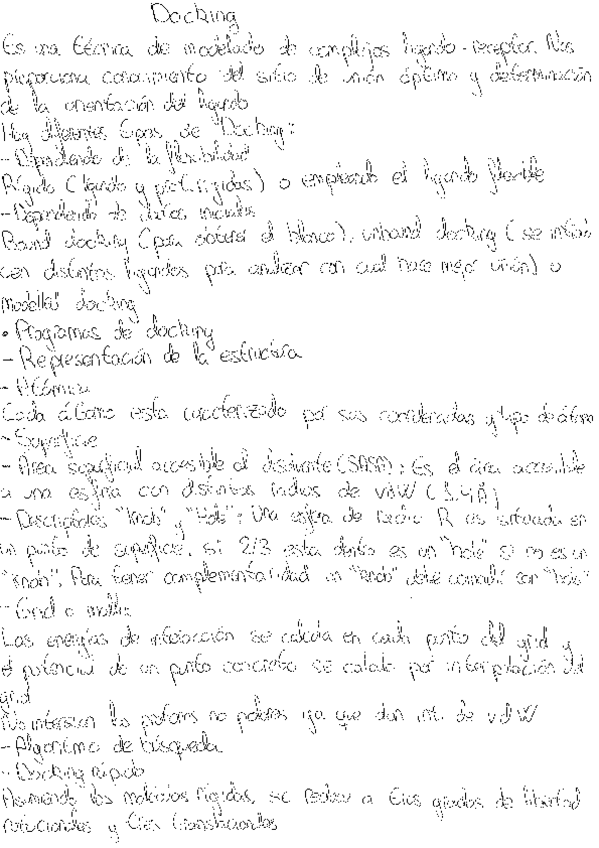 Docking
Es una técnica de modelado de complejos ligando-receptor. Nos
proporciona conocimiento del sitio de unión óptimo y determinación
de la orientación del ligando
Hay diferentes tipos de "Docking":
- Dependiendo de la flexibilidad
Rígido (ligando y prot. rígidas) o empleando el ligando flexible
- Dependiendo de datos iniciales
Bound docking (para obtener el blanco), unbound docking (se introdu
cen distintos ligandos para analizar con cual hace mejor unión) o
modelled docking
• Programas de docking
- Representación de la estructura
- Atómica
Cada átomo esta caracterizado por sus coordenadas y tipo de átomo
- Superficie
- Area superficial accesible al disolvente (SASA): Es el área accesible
a una esfera con distintos radios de vdW (1.4Å)
- Descriptores "Knob" y "Hole": Una esfera de radio R es situada en
un punto de superficie, si 2/3 esta dentro es un "hole" si no es un
"knob". Para tener complementaridad un "knob" debe coincidir con "hole"
- Grid o malla
Las energías de interacción se calcula en cada punto del grid y
el potencial de un punto concreto se calcula por interpolación del
grid
No interesan los protones no polares ya que dan int. de vdW
- Algoritmo de búsqueda
- Docking rápido
Asumiendo las moléculas rígidas, se reduce a tres grados de libertad
rotacionales y tres translacionales